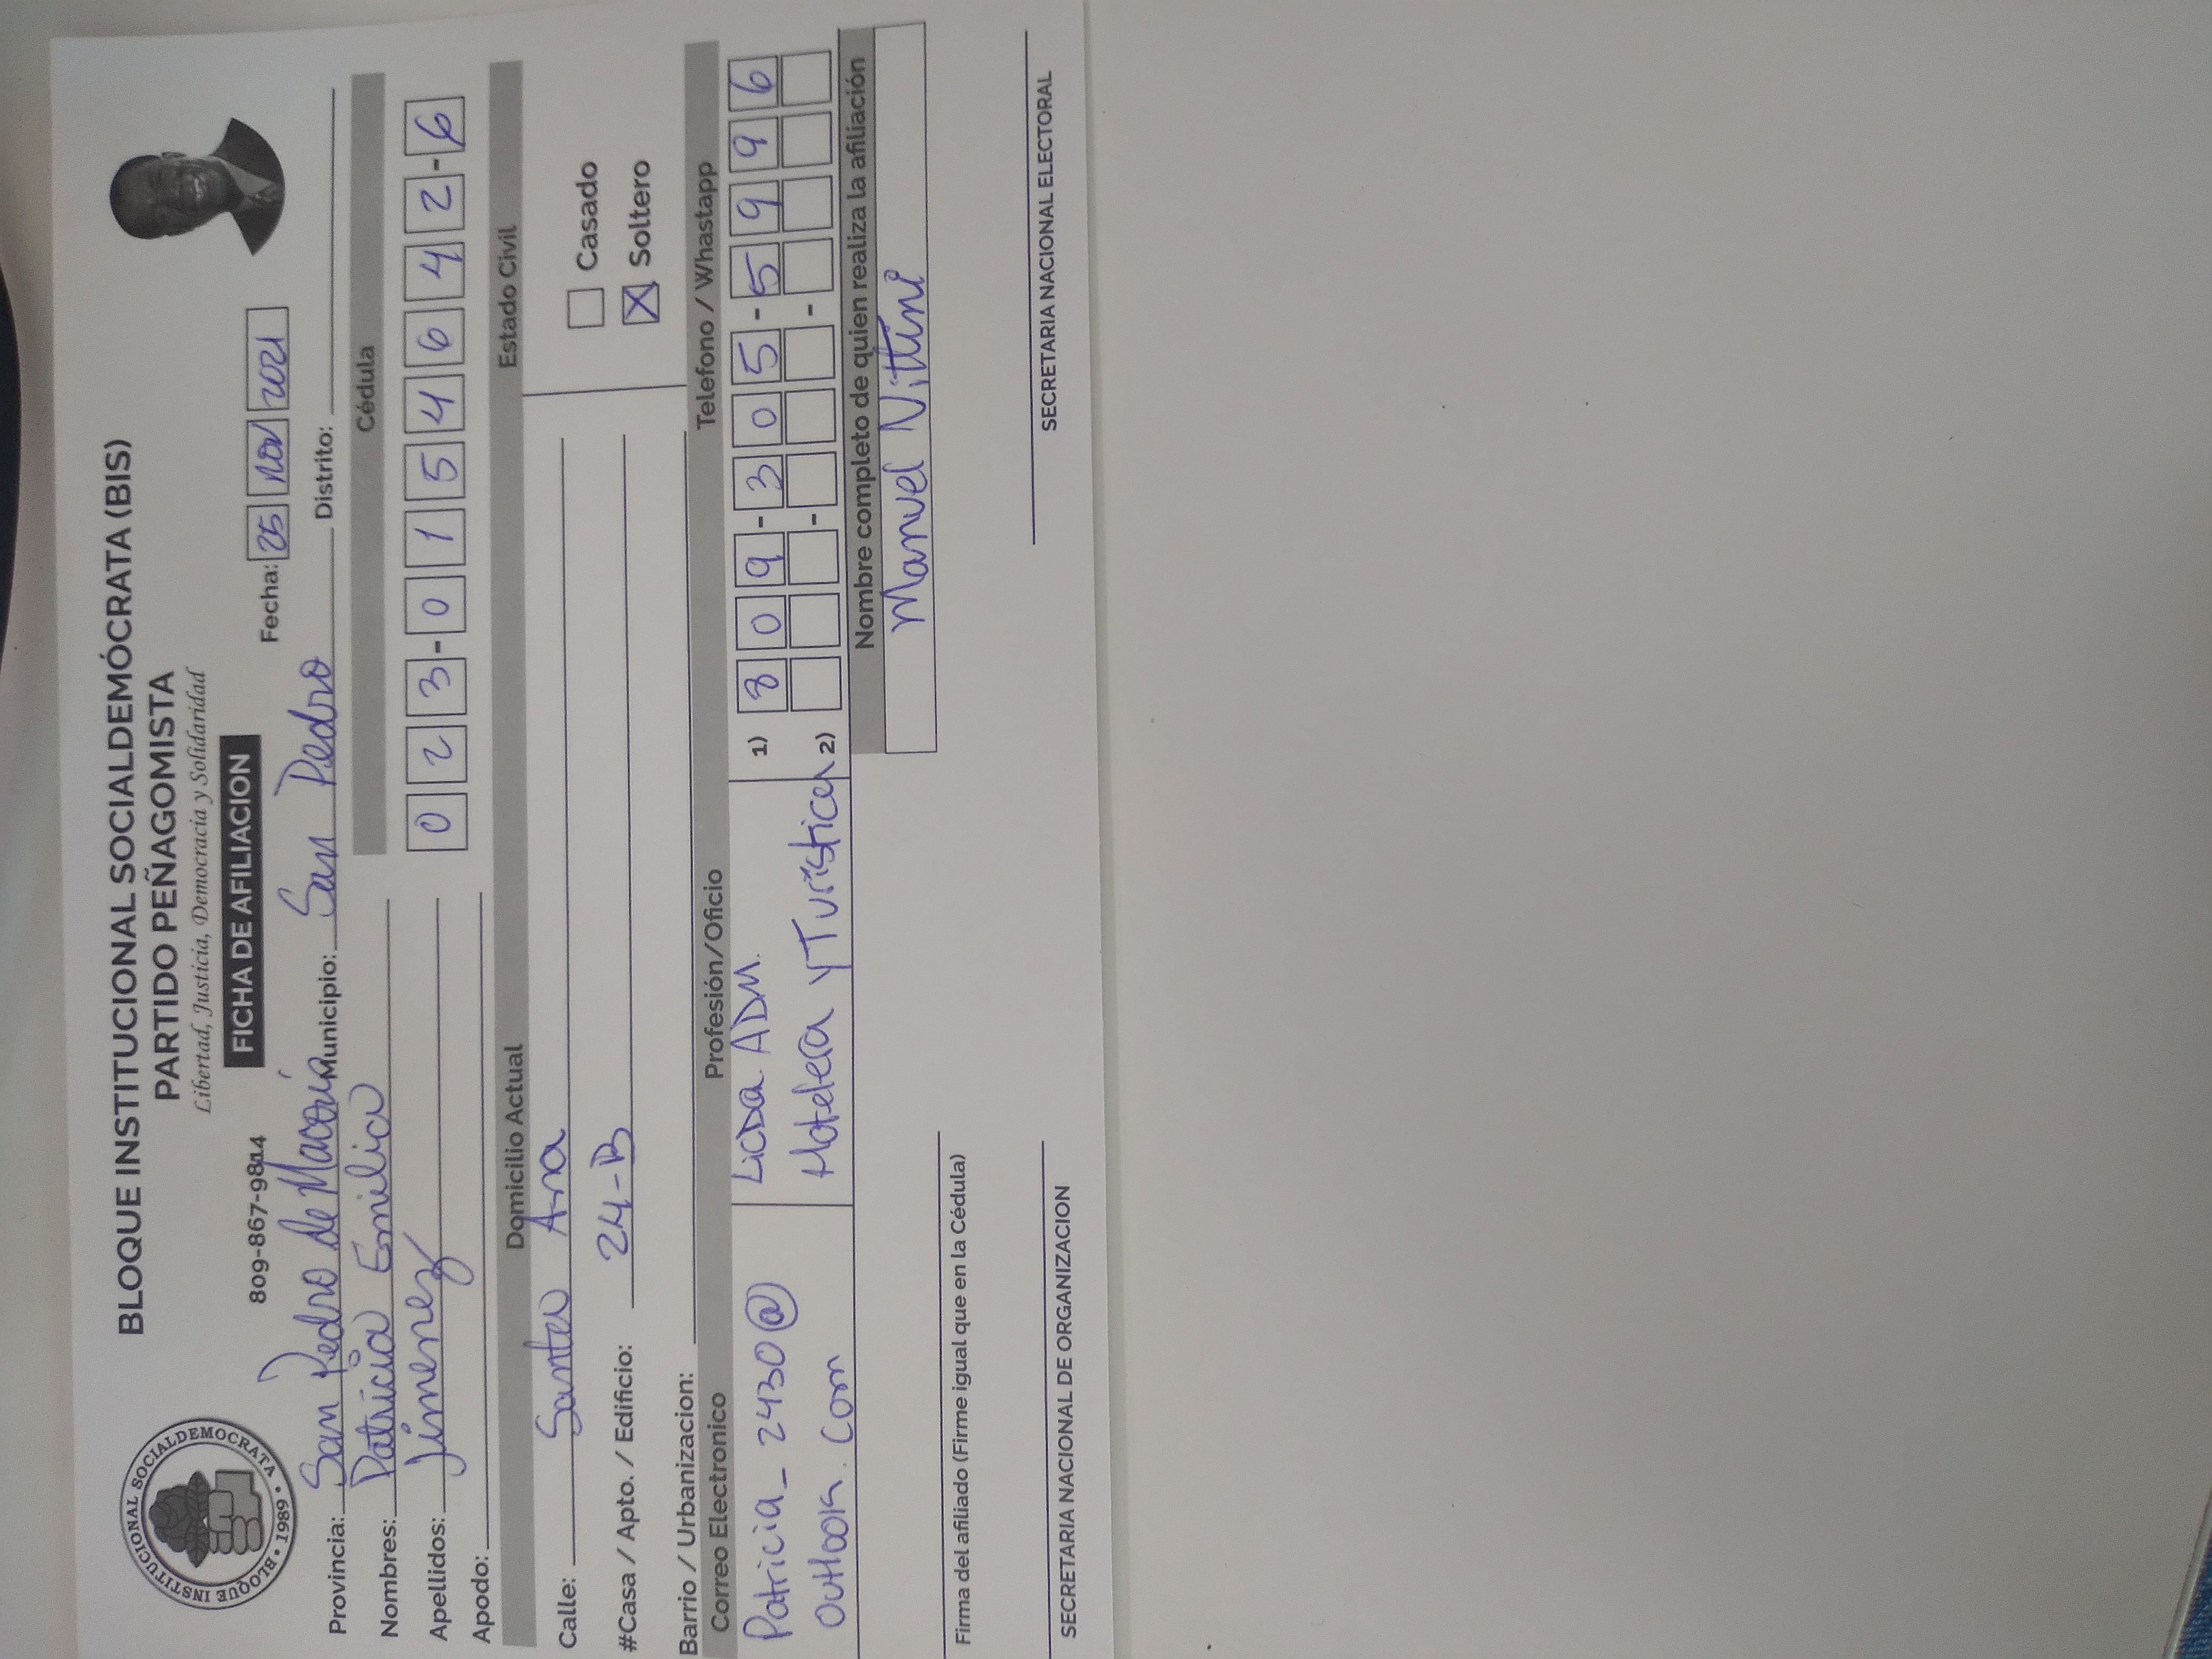 BLOQUE INSTITUCIONAL SOCIALDEMÓCRATA (BIS)
PARTIDO PEÑAGOMISTA
Libertad, Justicia, Democracia y Solidaridad
BLOQUE INSTITUCIONAL SOCIALDEMOCRATA • 1989 •
809-867-9814 FICHA DE AFILIACION Fecha: 25 Nov 2021
Provincia: San Pedro de Macorís Municipio: San Pedro Distrito:
Nombres: Patricia Emilia Cédula
Apellidos: Jimenez 023-0154642-6
Apodo:
Domicilio Actual Estado Civil
Calle: Santa Ana Casado
#Casa / Apto. / Edificio: 24-B X Soltero
Barrio / Urbanizacion:
Correo Electronico Profesión/Oficio Telefono / Whastapp
Patricia_2430@ Licda. ADM. 1) 809-305-5996
Outlook.com Hotelera y Turística 2) - -
Nombre completo de quien realiza la afiliación
Manuel Vittini
Firma del afiliado (Firme igual que en la Cédula)
SECRETARIA NACIONAL DE ORGANIZACION SECRETARIA NACIONAL ELECTORAL